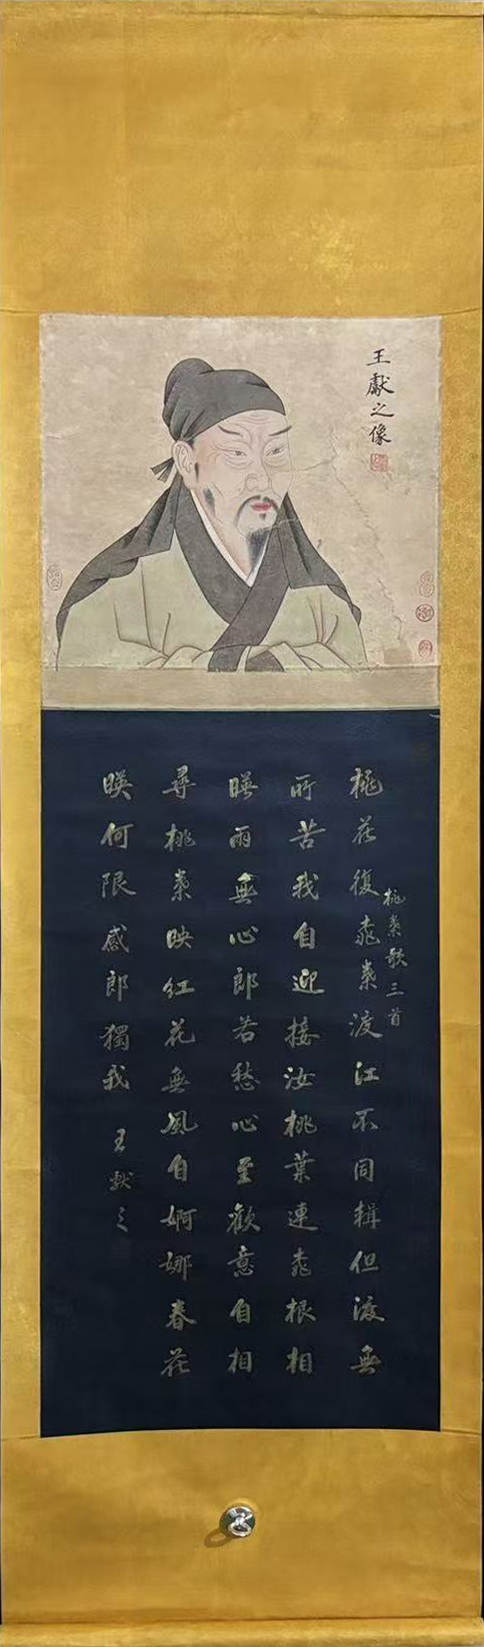 王獻之像
桃葉歌三首
桃花復桃葉渡江不同輯但渡無
所苦我自迎接汝桃葉連桃根相
暎雨無心郎若愁心至歡意自相
尋桃葉映紅花無風自婀娜春花
暎何限感郎獨我 王獻之